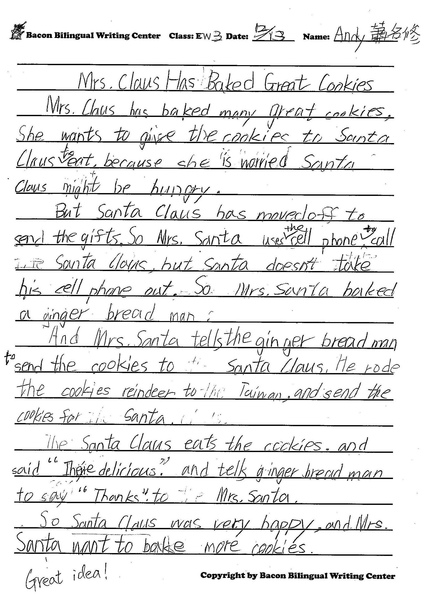 Bacon Bilingual Writing Center Class: EW3 Date: 12/13 Name: Andy 蕭名修
Mrs. Claus Has Baked Great Cookies
Mrs. Claus has baked many great cookies,
She wants to give the cookies to Santa
Claus to eat, because she is worried Santa
Claus might be hungry.
But Santa Claus has moved off to
send the gifts. So Mrs. Santa uses the cell phone to call
Santa Claus, but Santa doesn't take
his cell phone out. So Mrs. Santa baked
a ginger bread man.
And Mrs. Santa tells the ginger bread man
to send the cookies to Santa Claus. He rode
the cookies reindeer to Taiwan, and send the
cookies for Santa.
The Santa Claus eats the cookies. and
said "There delicious." and tells ginger bread man
to say "Thanks". to Mrs. Santa.
So Santa Claus was very happy, and Mrs.
Santa want to bake more cookies.
Great idea!
Copyright by Bacon Bilingual Writing Center